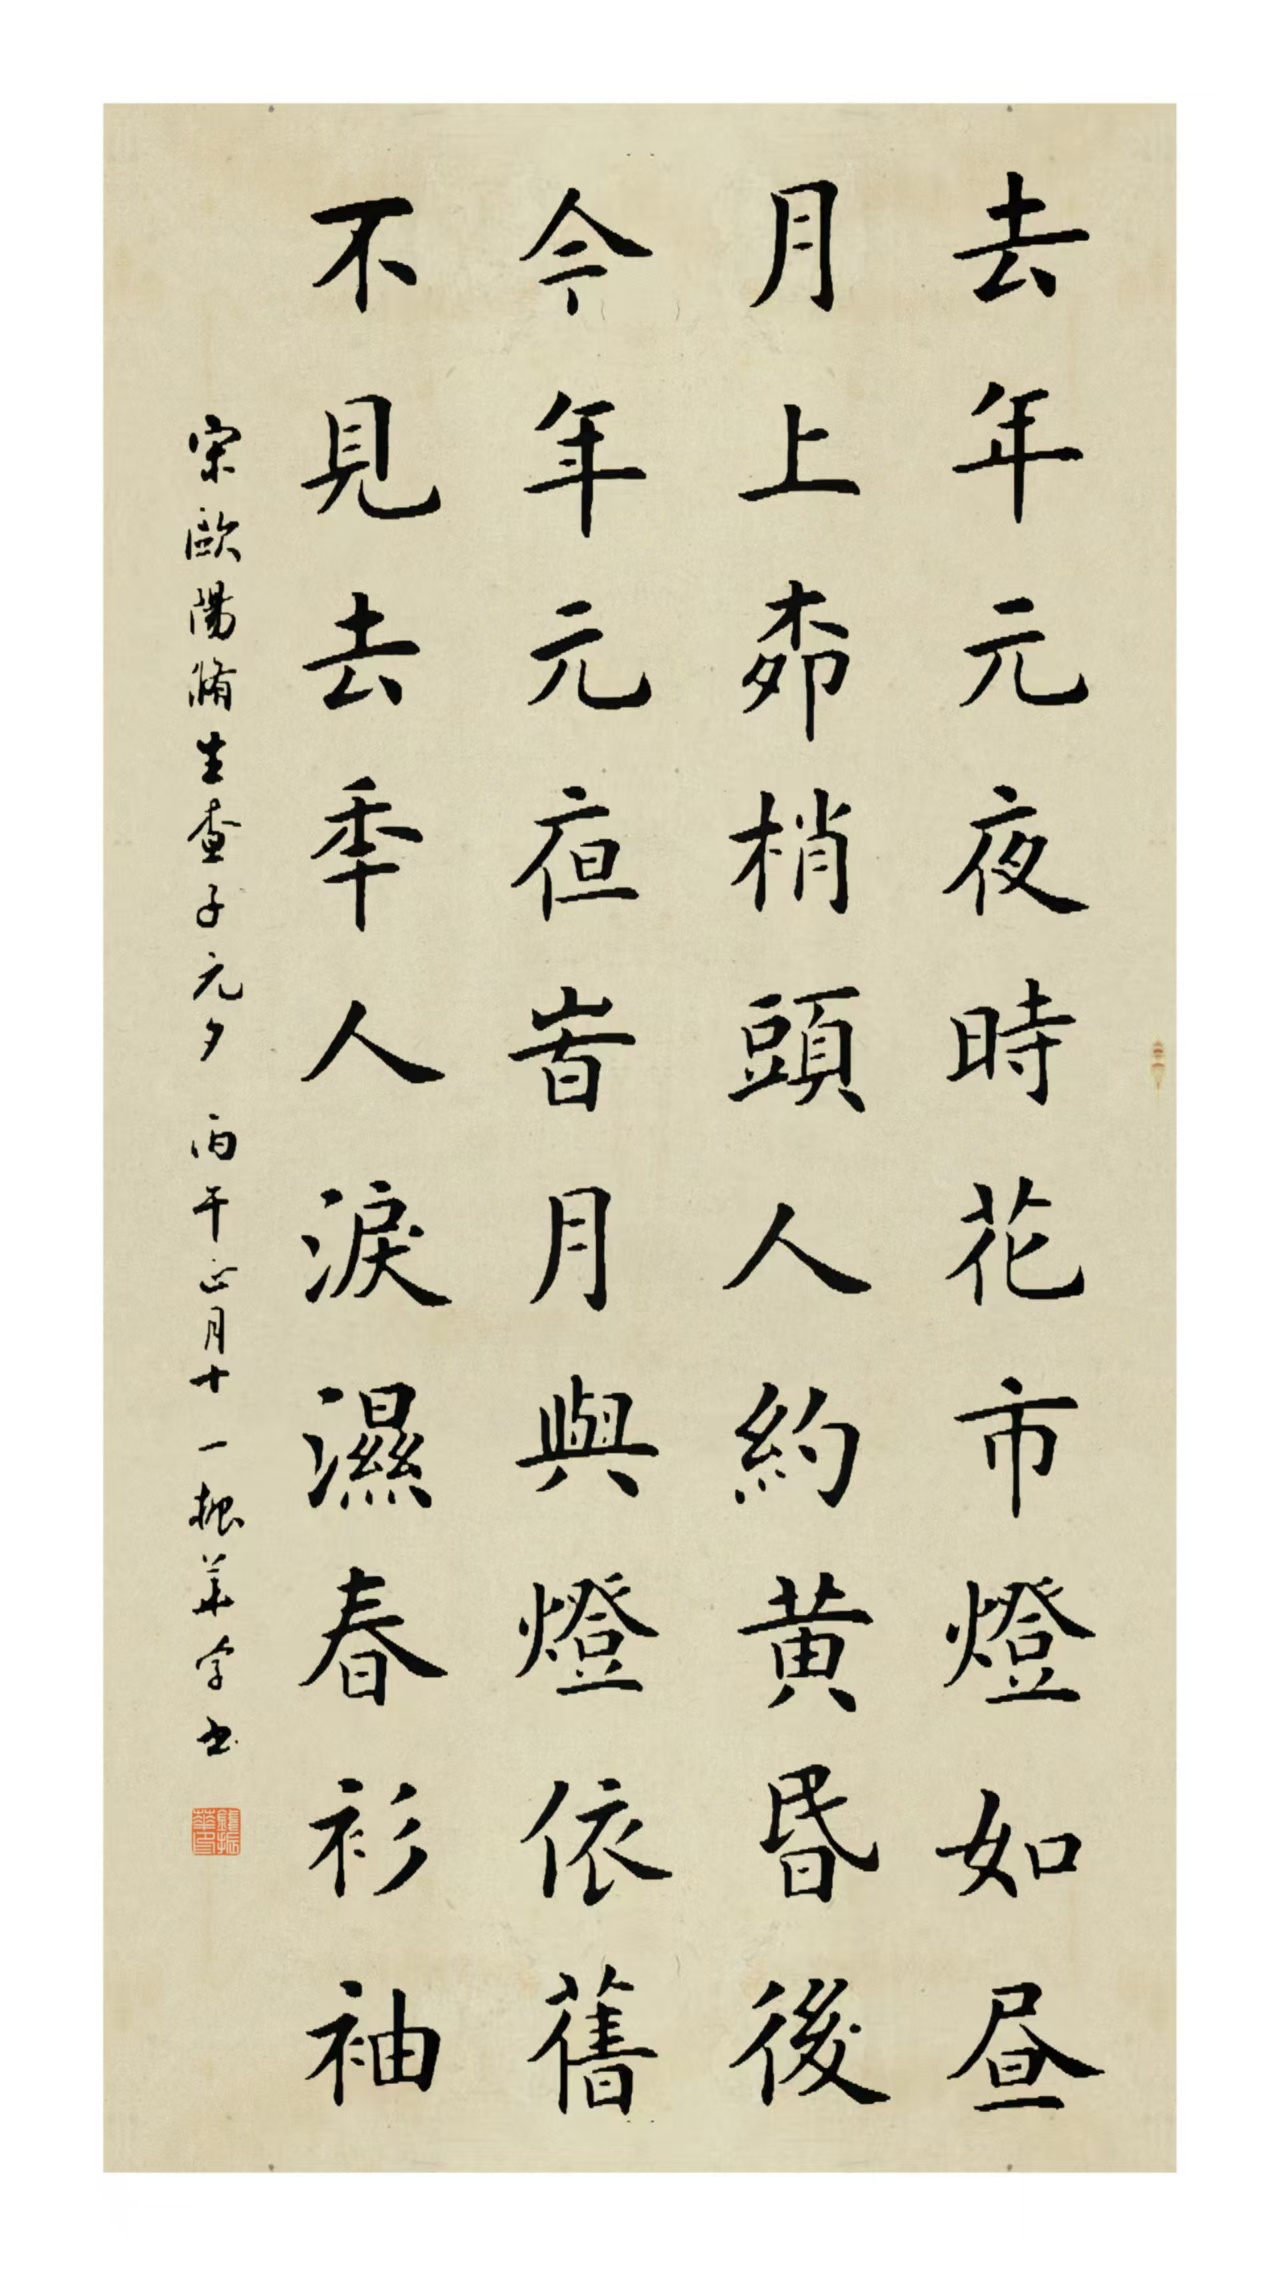 去年元夜時花市燈如昼
月上桞梢頭人約黄昬後
今年元夜旹月與燈依舊
不見去秊人淚濕春衫袖
宋歐陽脩生查子元夕 丙午正月十一振華學书